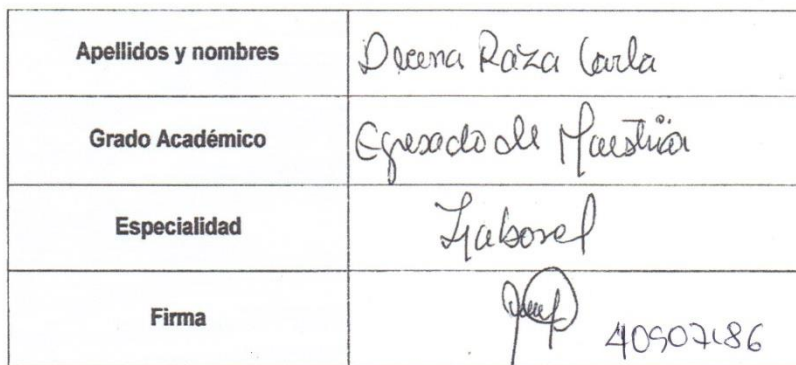 Apellidos y nombres Decena Raza Carla
Grado Académico Egresado de Maestria
Especialidad Laboral
Firma 40907186